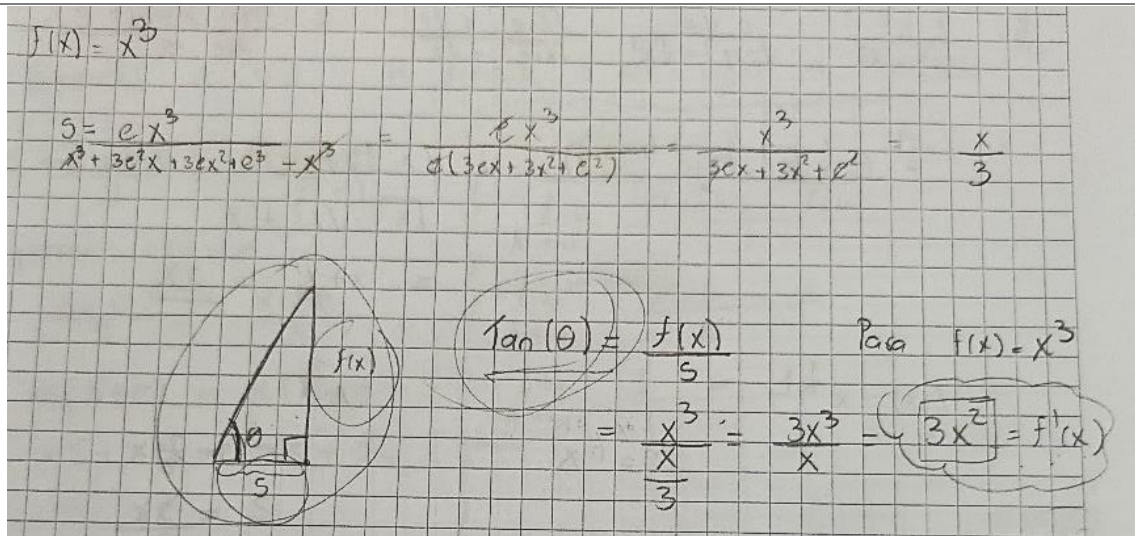 f(x) = x³
S = e x³ / x³ + 3e²x + 3ex² + e³ - x³ = e x³ / e(3ex + 3x² + e²) = x³ / 3ex + 3x² + e² = x / 3
f(x)
θ
S
Tan (θ) = f(x) / S Para f(x) = x³
= x³ / x / 3 = 3x³ / x = 3x² = f'(x)